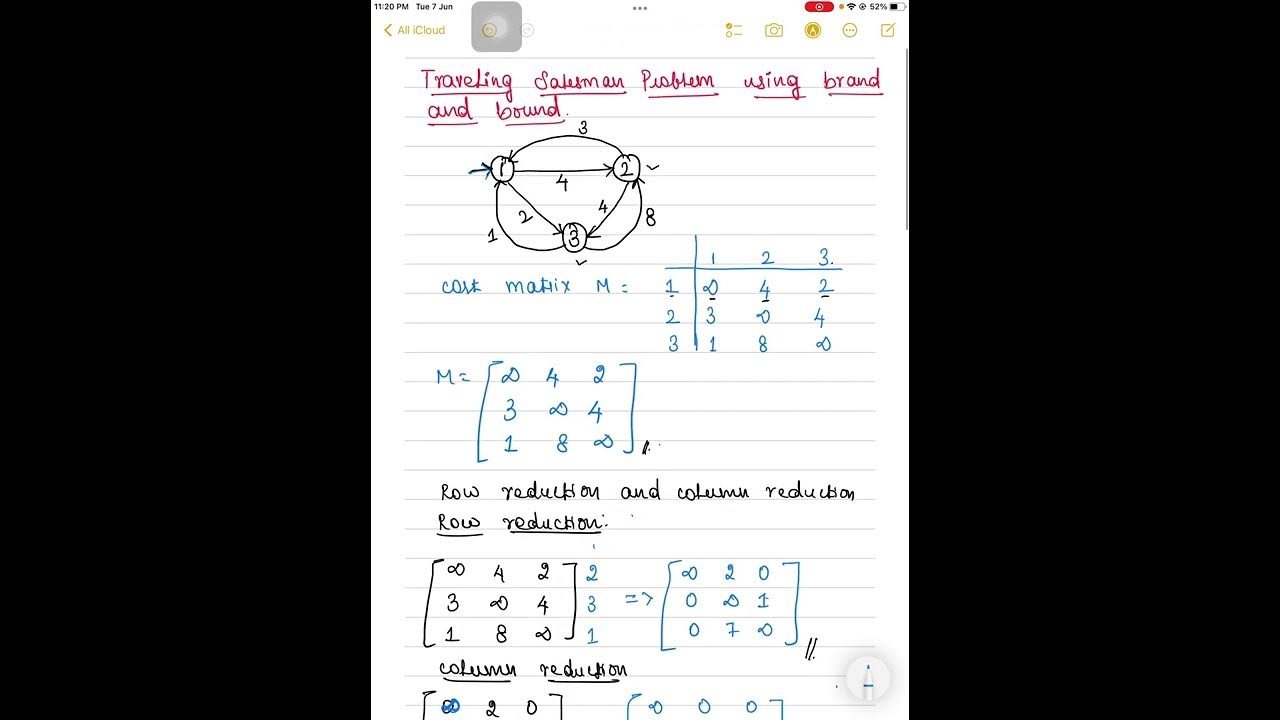 11:20 PM Tue 7 Jun
52%
All iCloud
Traveling Salesman Problem using brand
and bound.
3
1 4 2
2 4 8
1 3
1 2 3.
cost matrix M = 1 ∞ 4 2
2 3 ∞ 4
3 1 8 ∞
M = ∞ 4 2
3 ∞ 4
1 8 ∞
Row reduction and column reduction
Row reduction:
∞ 4 2 2 ∞ 2 0
3 ∞ 4 3 => 0 ∞ 1
1 8 ∞ 1 0 7 ∞
column reduction
∞ 2 0 ∞ 0 0